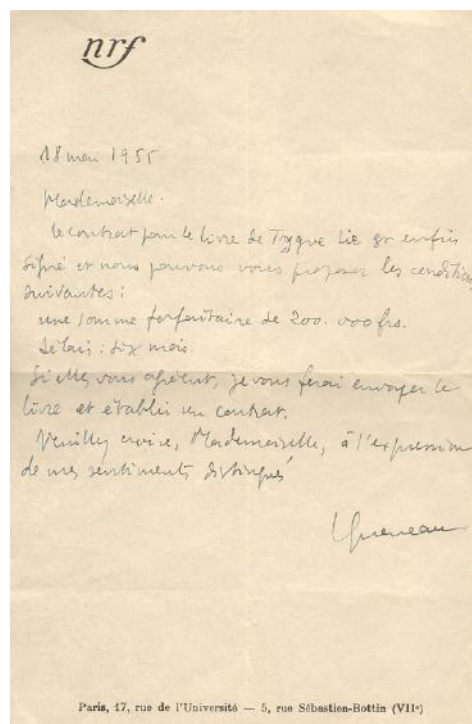 nrf
18 mai 1955
Mademoiselle.
le contrat pour le livre de Trygve Lie est enfin
signé et nous pouvons vous proposer les conditions
suivantes :
une somme forfaitaire de 200.000 frs.
délais : six mois.
Si elles vous agréent, je vous ferai envoyer le
livre et établir un contrat.
Veuillez croire, Mademoiselle, à l'expression
de mes sentiments distingués
Queneau
Paris, 17, rue de l'Université — 5, rue Sébastien-Bottin (VIIe)